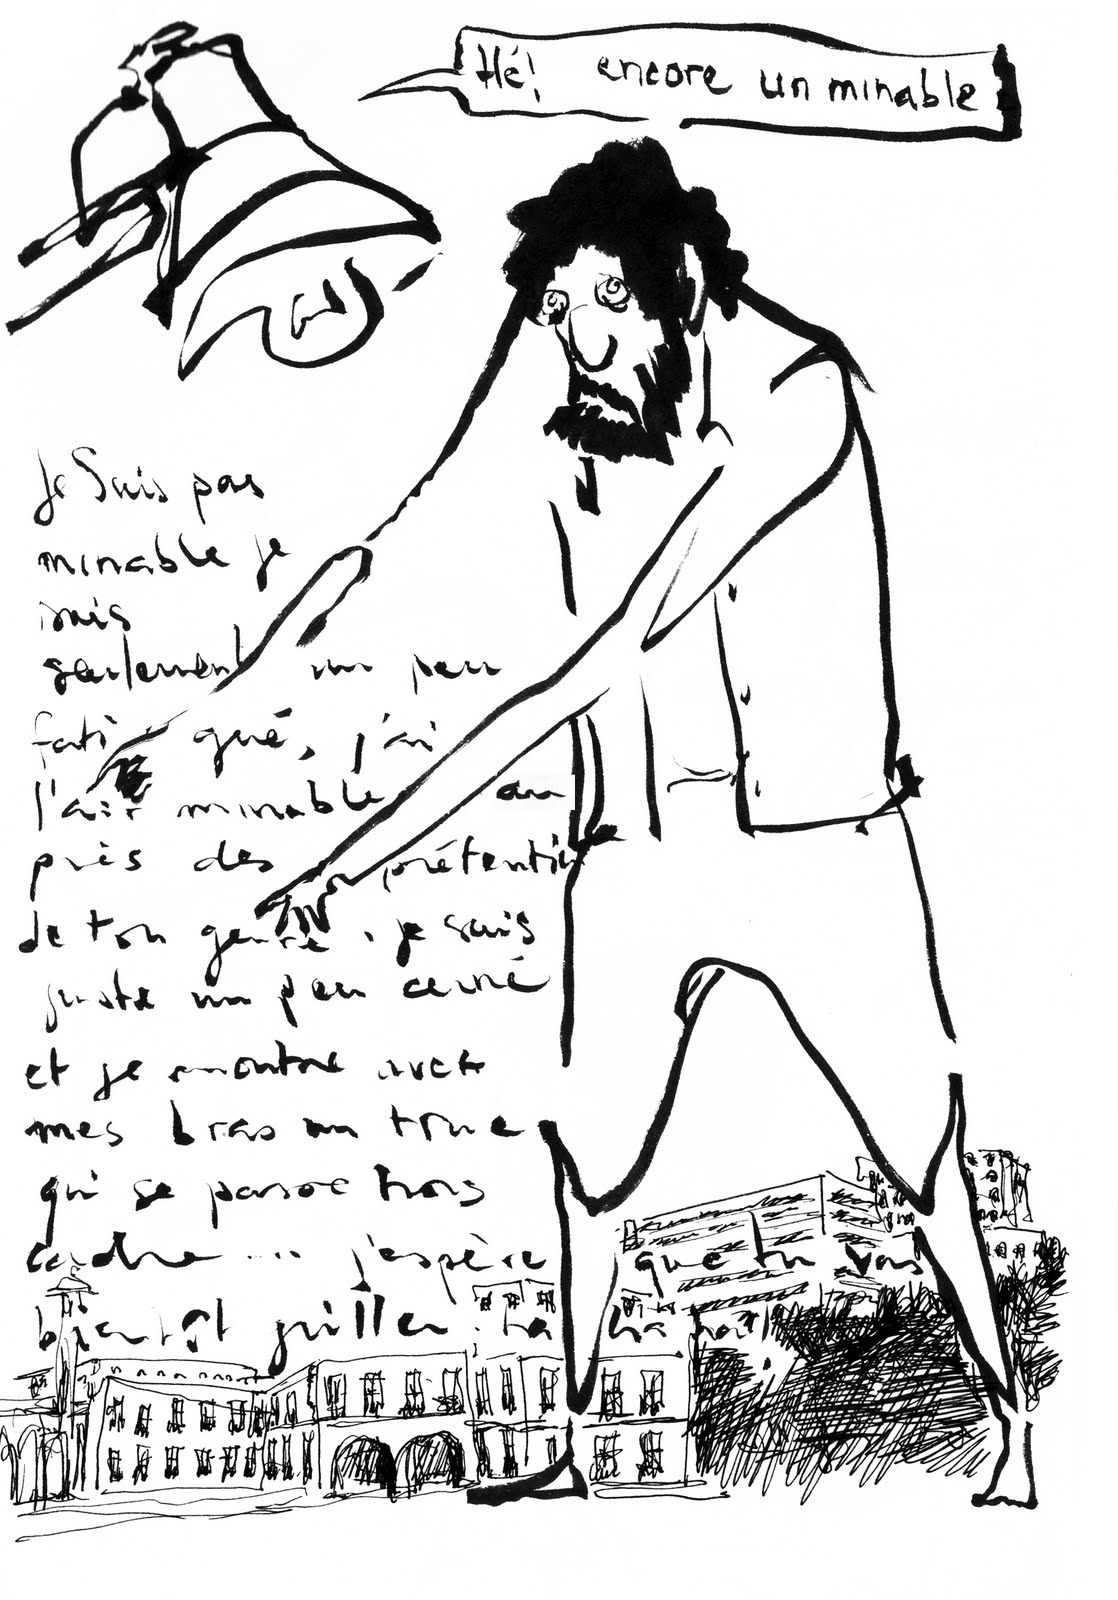 Hé! encore un minable
Je Suis pas
minable je
suis
seulement un peu
fati gué, j'ai
l'air minable au
près des prétentieu
de ton genre. je suis
juste un peu cerné
et je montre avec
mes bras un truc
qui se passe hors
cadre ... j'espère que tu vas
bientôt griller. ha ha ha!